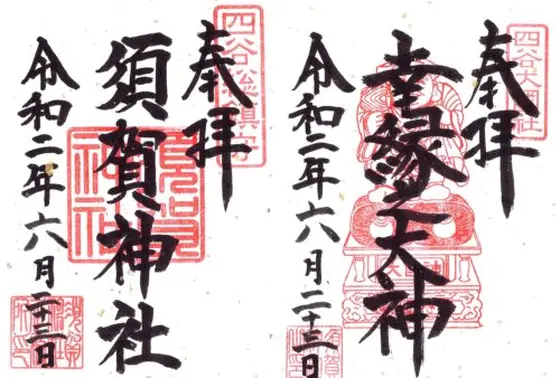 四谷総鎮守
奉拝
須賀神社
須賀神社
令和二年六月二十三日
四谷大国社
奉拝
幸縁
神
令和二年六月二十三日